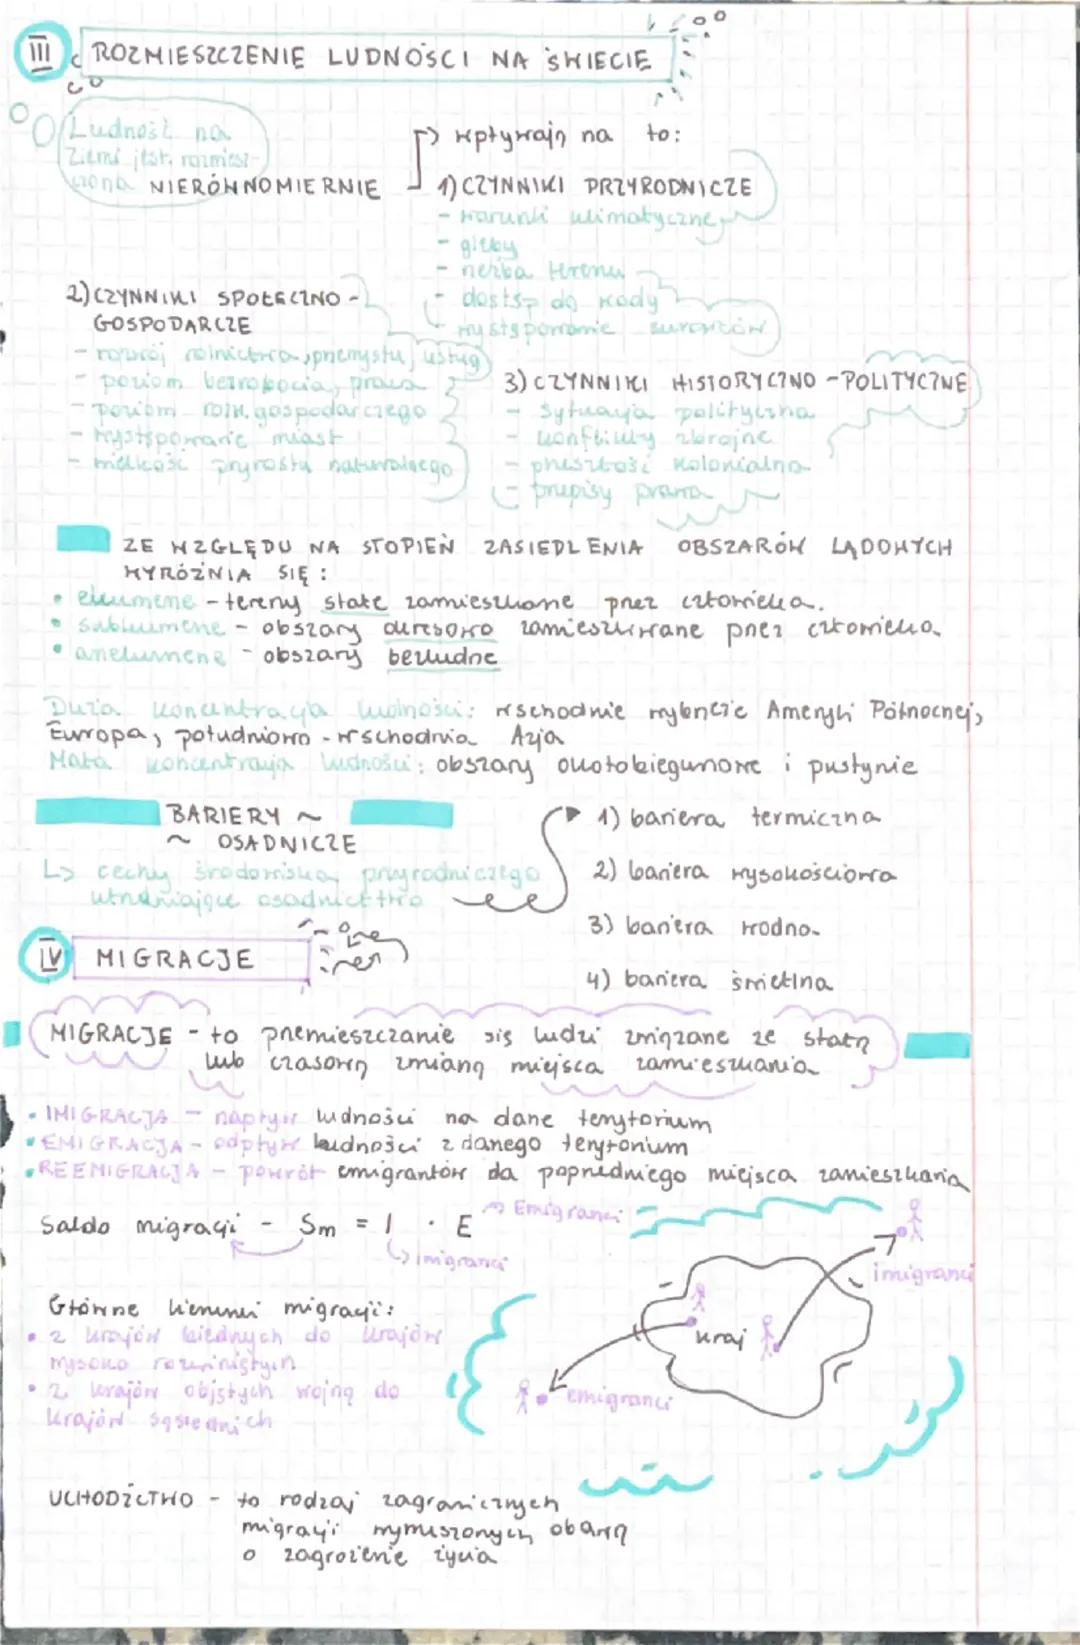 III ROZMIESZCZENIE LUDNOŚCI NA ŚWIECIE
Ludność na
Ziemi jest rozmiesz-
czona NIERÓWNOMIERNIE
wpływają na to:
1) CZYNNIKI PRZYRODNICZE
- warunki klimatyczne
- gleby
- rzeźba terenu
- dostęp do wody
- występowanie surowców
2) CZYNNIKI SPOŁECZNO-
GOSPODARCZE
- rozwój rolnictwa, przemysłu, usług
- poziom bezrobocia, praca
- poziom rozw. gospodarczego
- występowanie miast
- wielkość przyrostu naturalnego
3) CZYNNIKI HISTORYCZNO-POLITYCZNE
- sytuacja polityczna
- konflikty zbrojne
- przeszłość kolonialna
- przepisy prawa
ZE WZGLĘDU NA STOPIEŃ ZASIEDLENIA OBSZARÓW LĄDOWYCH
WYRÓŻNIA SIĘ:
• ekumene - tereny stałe zamieszkane przez człowieka.
• subekumene - obszary okresowo zamieszkiwane przez człowieka
• anekumene - obszary bezludne
Duża koncentracja ludności: wschodnie wybrzeże Ameryki Północnej,
Europa, południowo-wschodnia Azja
Mała koncentracja ludności: obszary okołobiegunowe i pustynie
BARIERY ~
~ OSADNICZE
↳ cechy środowiska przyrodniczego
utrudniające osadnictwo
1) bariera termiczna
2) bariera wysokościowa
3) bariera wodna
4) bariera świetlna
IV MIGRACJE
MIGRACJE - to przemieszczanie się ludzi związane ze stałą
lub czasową zmianą miejsca zamieszkania
• IMIGRACJA - napływ ludności na dane terytorium
• EMIGRACJA - odpływ ludności z danego terytorium
• REEMIGRACJA - powrót emigrantów do poprzedniego miejsca zamieszkania
Saldo migracji - Sm = I · E
Emigranci
imigranci
Główne kierunki migracji:
• z krajów biednych do krajów
wysoko rozwiniętych
• z krajów objętych wojną do
krajów sąsiednich
imigranci
kraj
emigranci
UCHODŹCTWO - to rodzaj zagranicznych
migracji wymuszonych obawą
o zagrożenie życia